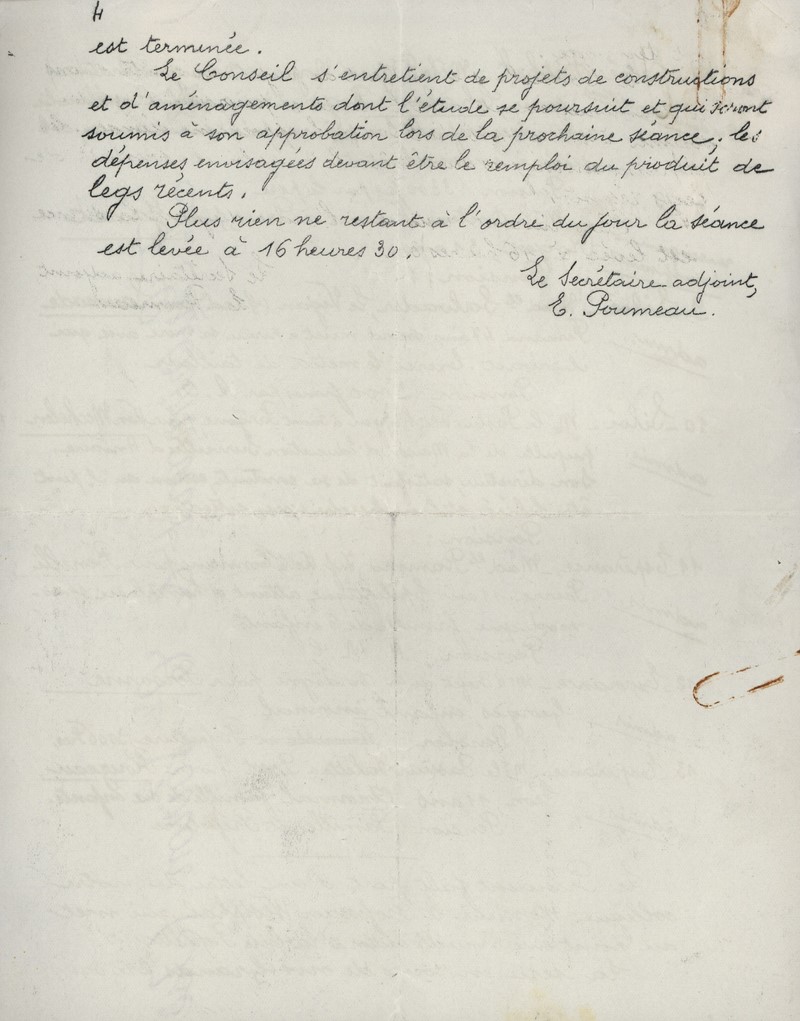 4
est terminée.
Le Conseil s'entretient de projets de constructions
et d'aménagements dont l'étude se poursuit et qui seront
soumis à son approbation lors de la prochaine séance, les
dépenses envisagées devant être le remploi du produit de
legs récents.
Plus rien ne restant à l'ordre du jour la séance
est levée à 16 heures 30.
Le Secrétaire adjoint,
E. Poumeau.